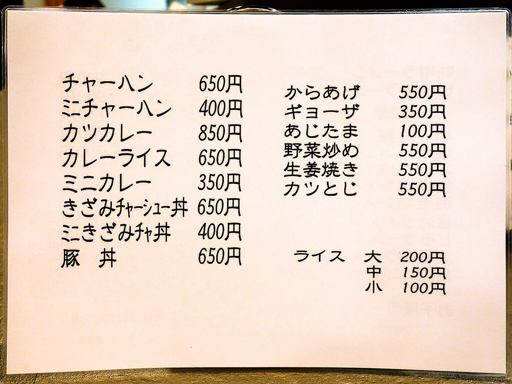 チャーハン 650円
ミニチャーハン 400円
カツカレー 850円
カレーライス 650円
ミニカレー 350円
きざみチャーシュー丼 650円
ミニきざみチャ丼 400円
豚 丼 650円
からあげ 550円
ギョーザ 350円
あじたま 100円
野菜炒め 550円
生姜焼き 550円
カツとじ 550円
ライス 大 200円
中 150円
小 100円